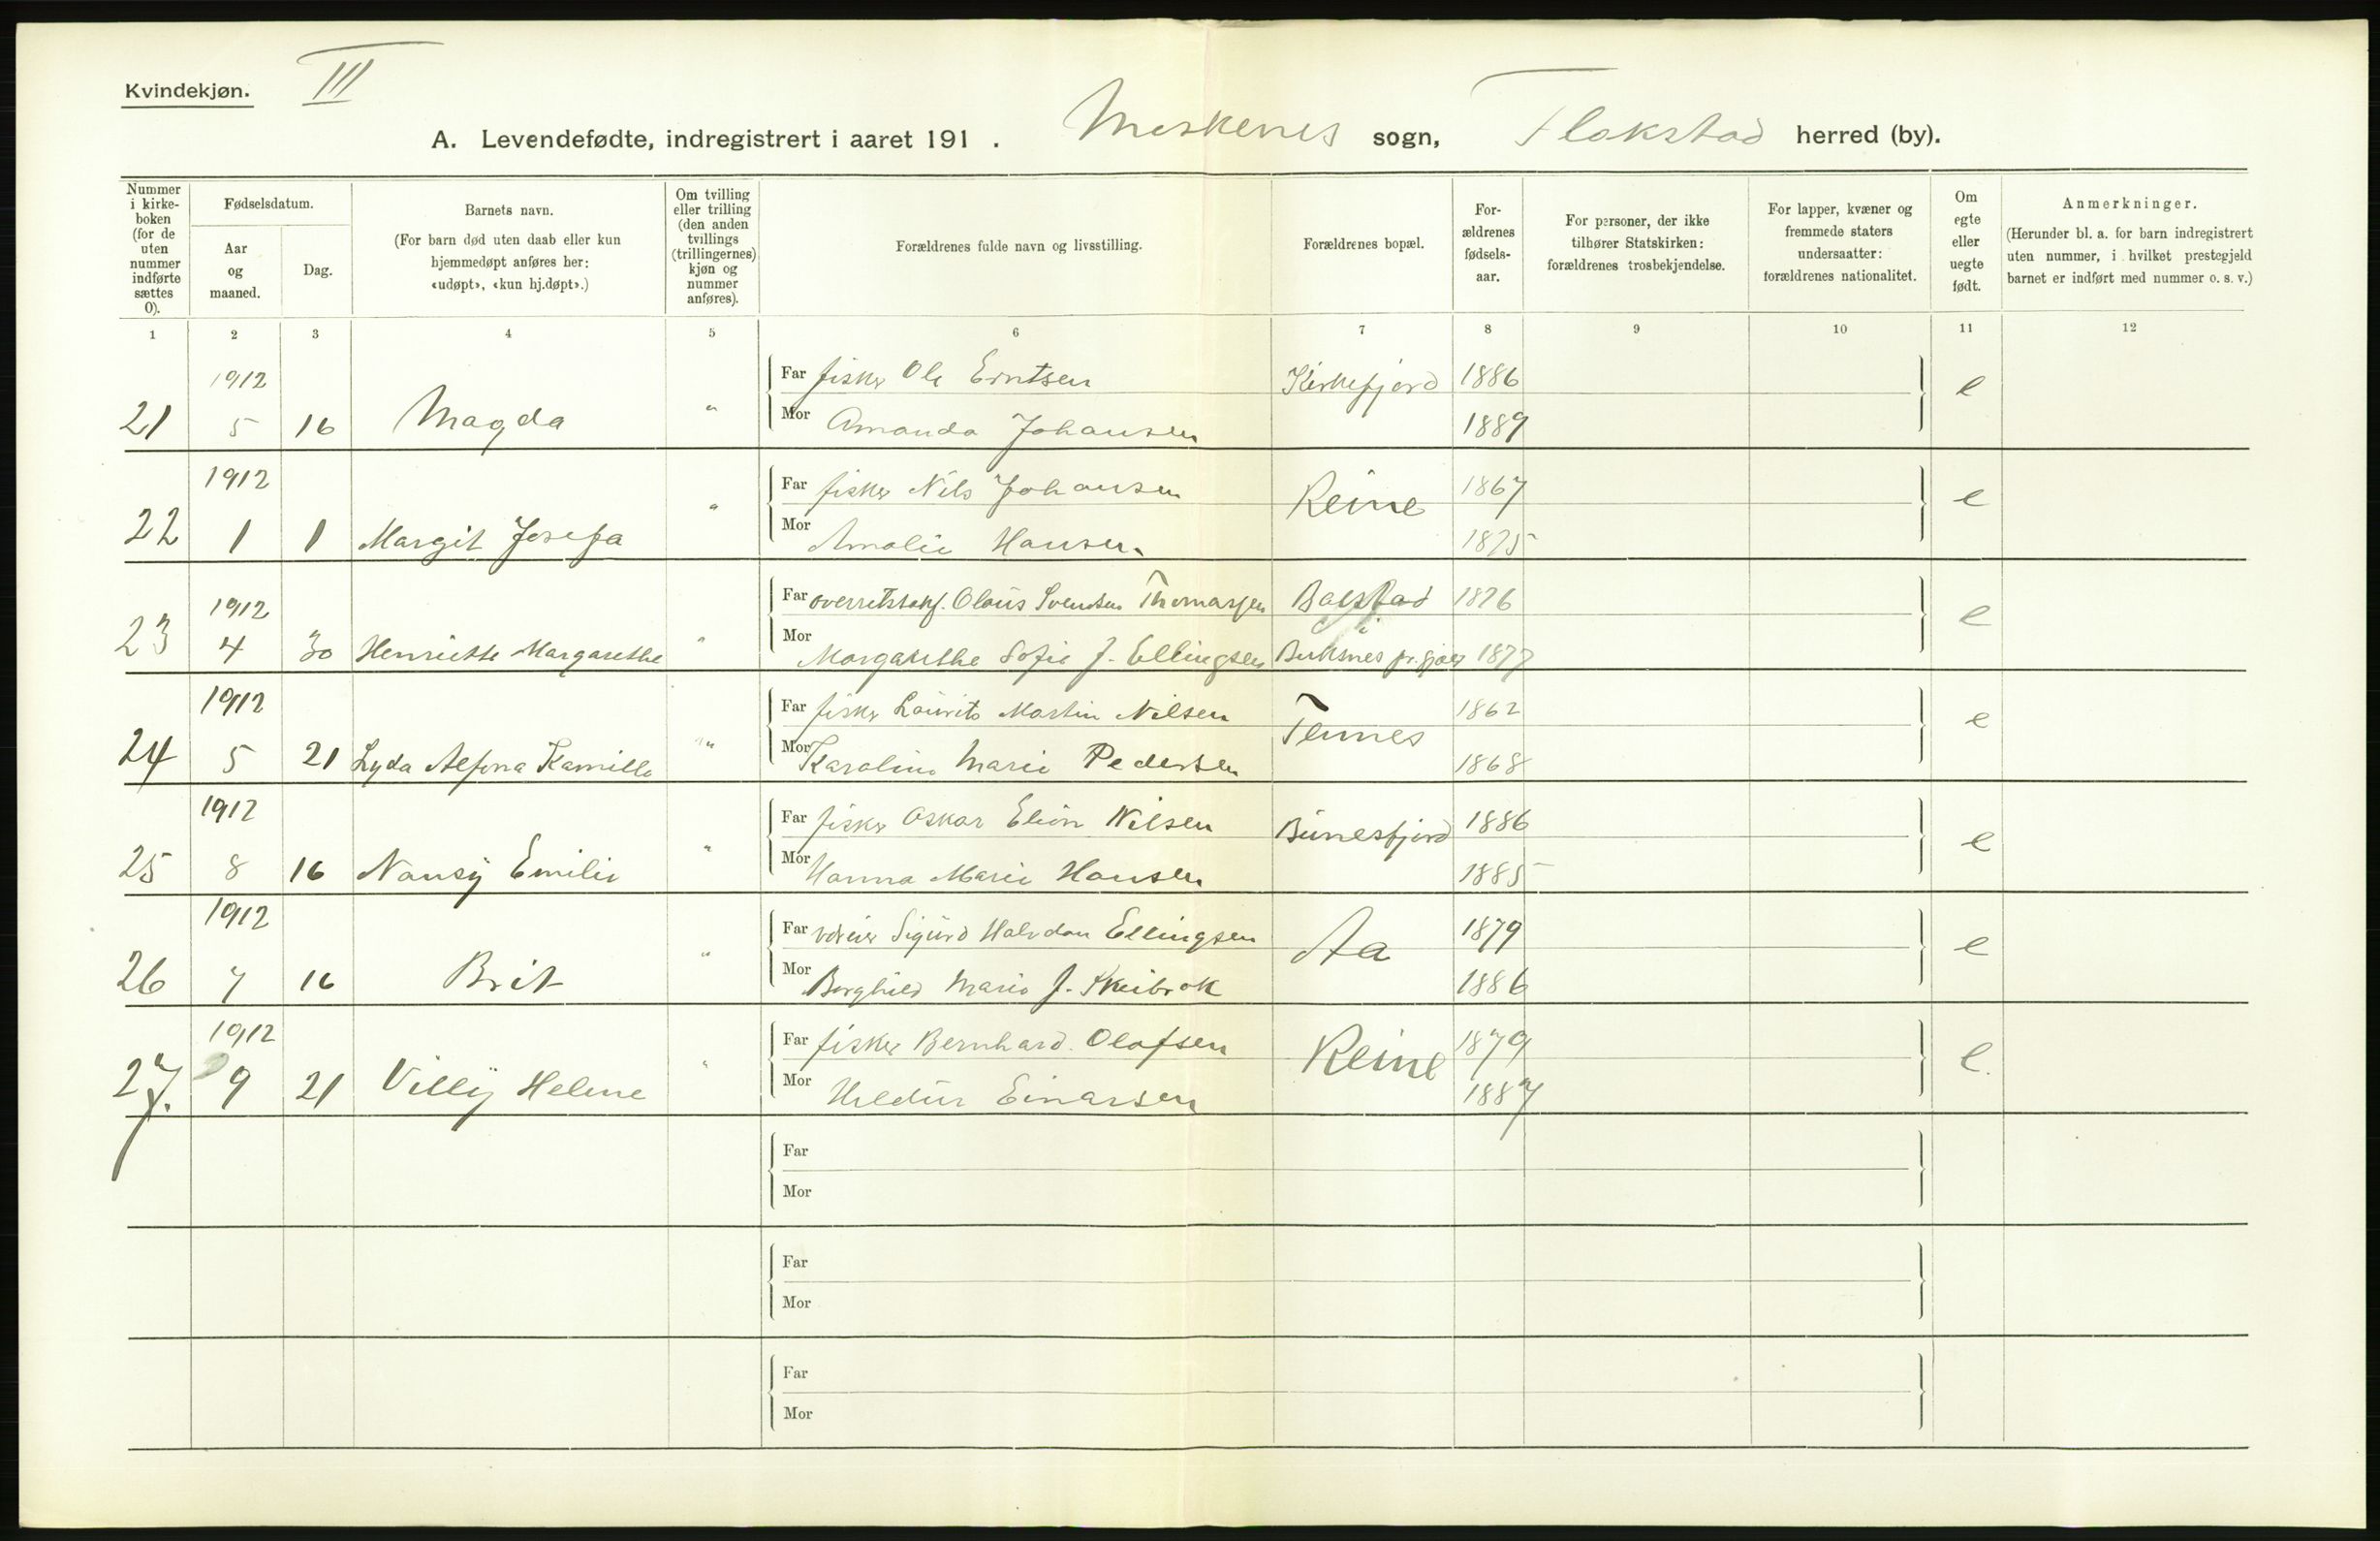 Kvindekjøn.
III
A. Levendefødte, indregistrert i aaret 191 . Moskenes sogn, Flakstad herred (by).
Nummer i kirke-boken (for de uten nummer indførte sættes 0).
Fødselsdatum.
Aar og maaned.
Dag.
Barnets navn.
(For barn død uten daab eller kun hjemmedøpt anføres her: «udøpt», «kun hj.døpt».)
Om tvilling eller trilling (den anden tvillings (trillingernes) kjøn og nummer anføres).
Forældrenes fulde navn og livsstilling.
Forældrenes bopæl.
For-ældrenes fødsels-aar.
For personer, der ikke tilhører Statskirken: forældrenes trosbekjendelse.
For lapper, kvæner og fremmede staters undersaatter: forældrenes nationalitet.
Om egte eller uegte født.
Anmerkninger.
(Herunder bl. a. for barn indregistrert uten nummer, i hvilket prestegjeld barnet er indført med nummer o. s. v.)
1 2 3 4 5 6 7 8 9 10 11 12
1912 Far fisker Ole Erntsen Kirkefjord 1886 e
21 5 16 Magda " Mor Amanda Johansen 1889
1912 Far fisker Nils Johansen Reine 1867 e
22 1 1 Margit Josefa " Mor Amalie Hansen 1875
1912 Far overretssakf. Olaus Svendsen Thomassen Balstad 1876 e
i
23 4 30 Henriette Margarethe " Mor Margarethe Sofie J. Ellingsen Buksnes pr.gjæl 1877
1912 Far fisker Laurits Martin Nilsen Tennes 1862 e
24 5 21 Lyda Alfona Kamilla " Mor Karoline Marie Pedersen 1868
1912 Far fisker Oskar Elion Nilsen Bunesfjord 1886 e
25 8 16 Nansy Emilie " Mor Hanna Marie Hansen 1885
1912 Far Sigurd Halvdan Ellingsen Aa 1879 e
26 7 16 Brit " Mor Borghild Marie J. Skeibrok 1886
1912 Far fisker Bernhard Olafsen Reine 1879 e.
27. 9 21 Villy Helene " Mor Hildur Einarsen 1887
Far
Mor
Far
Mor
Far
Mor